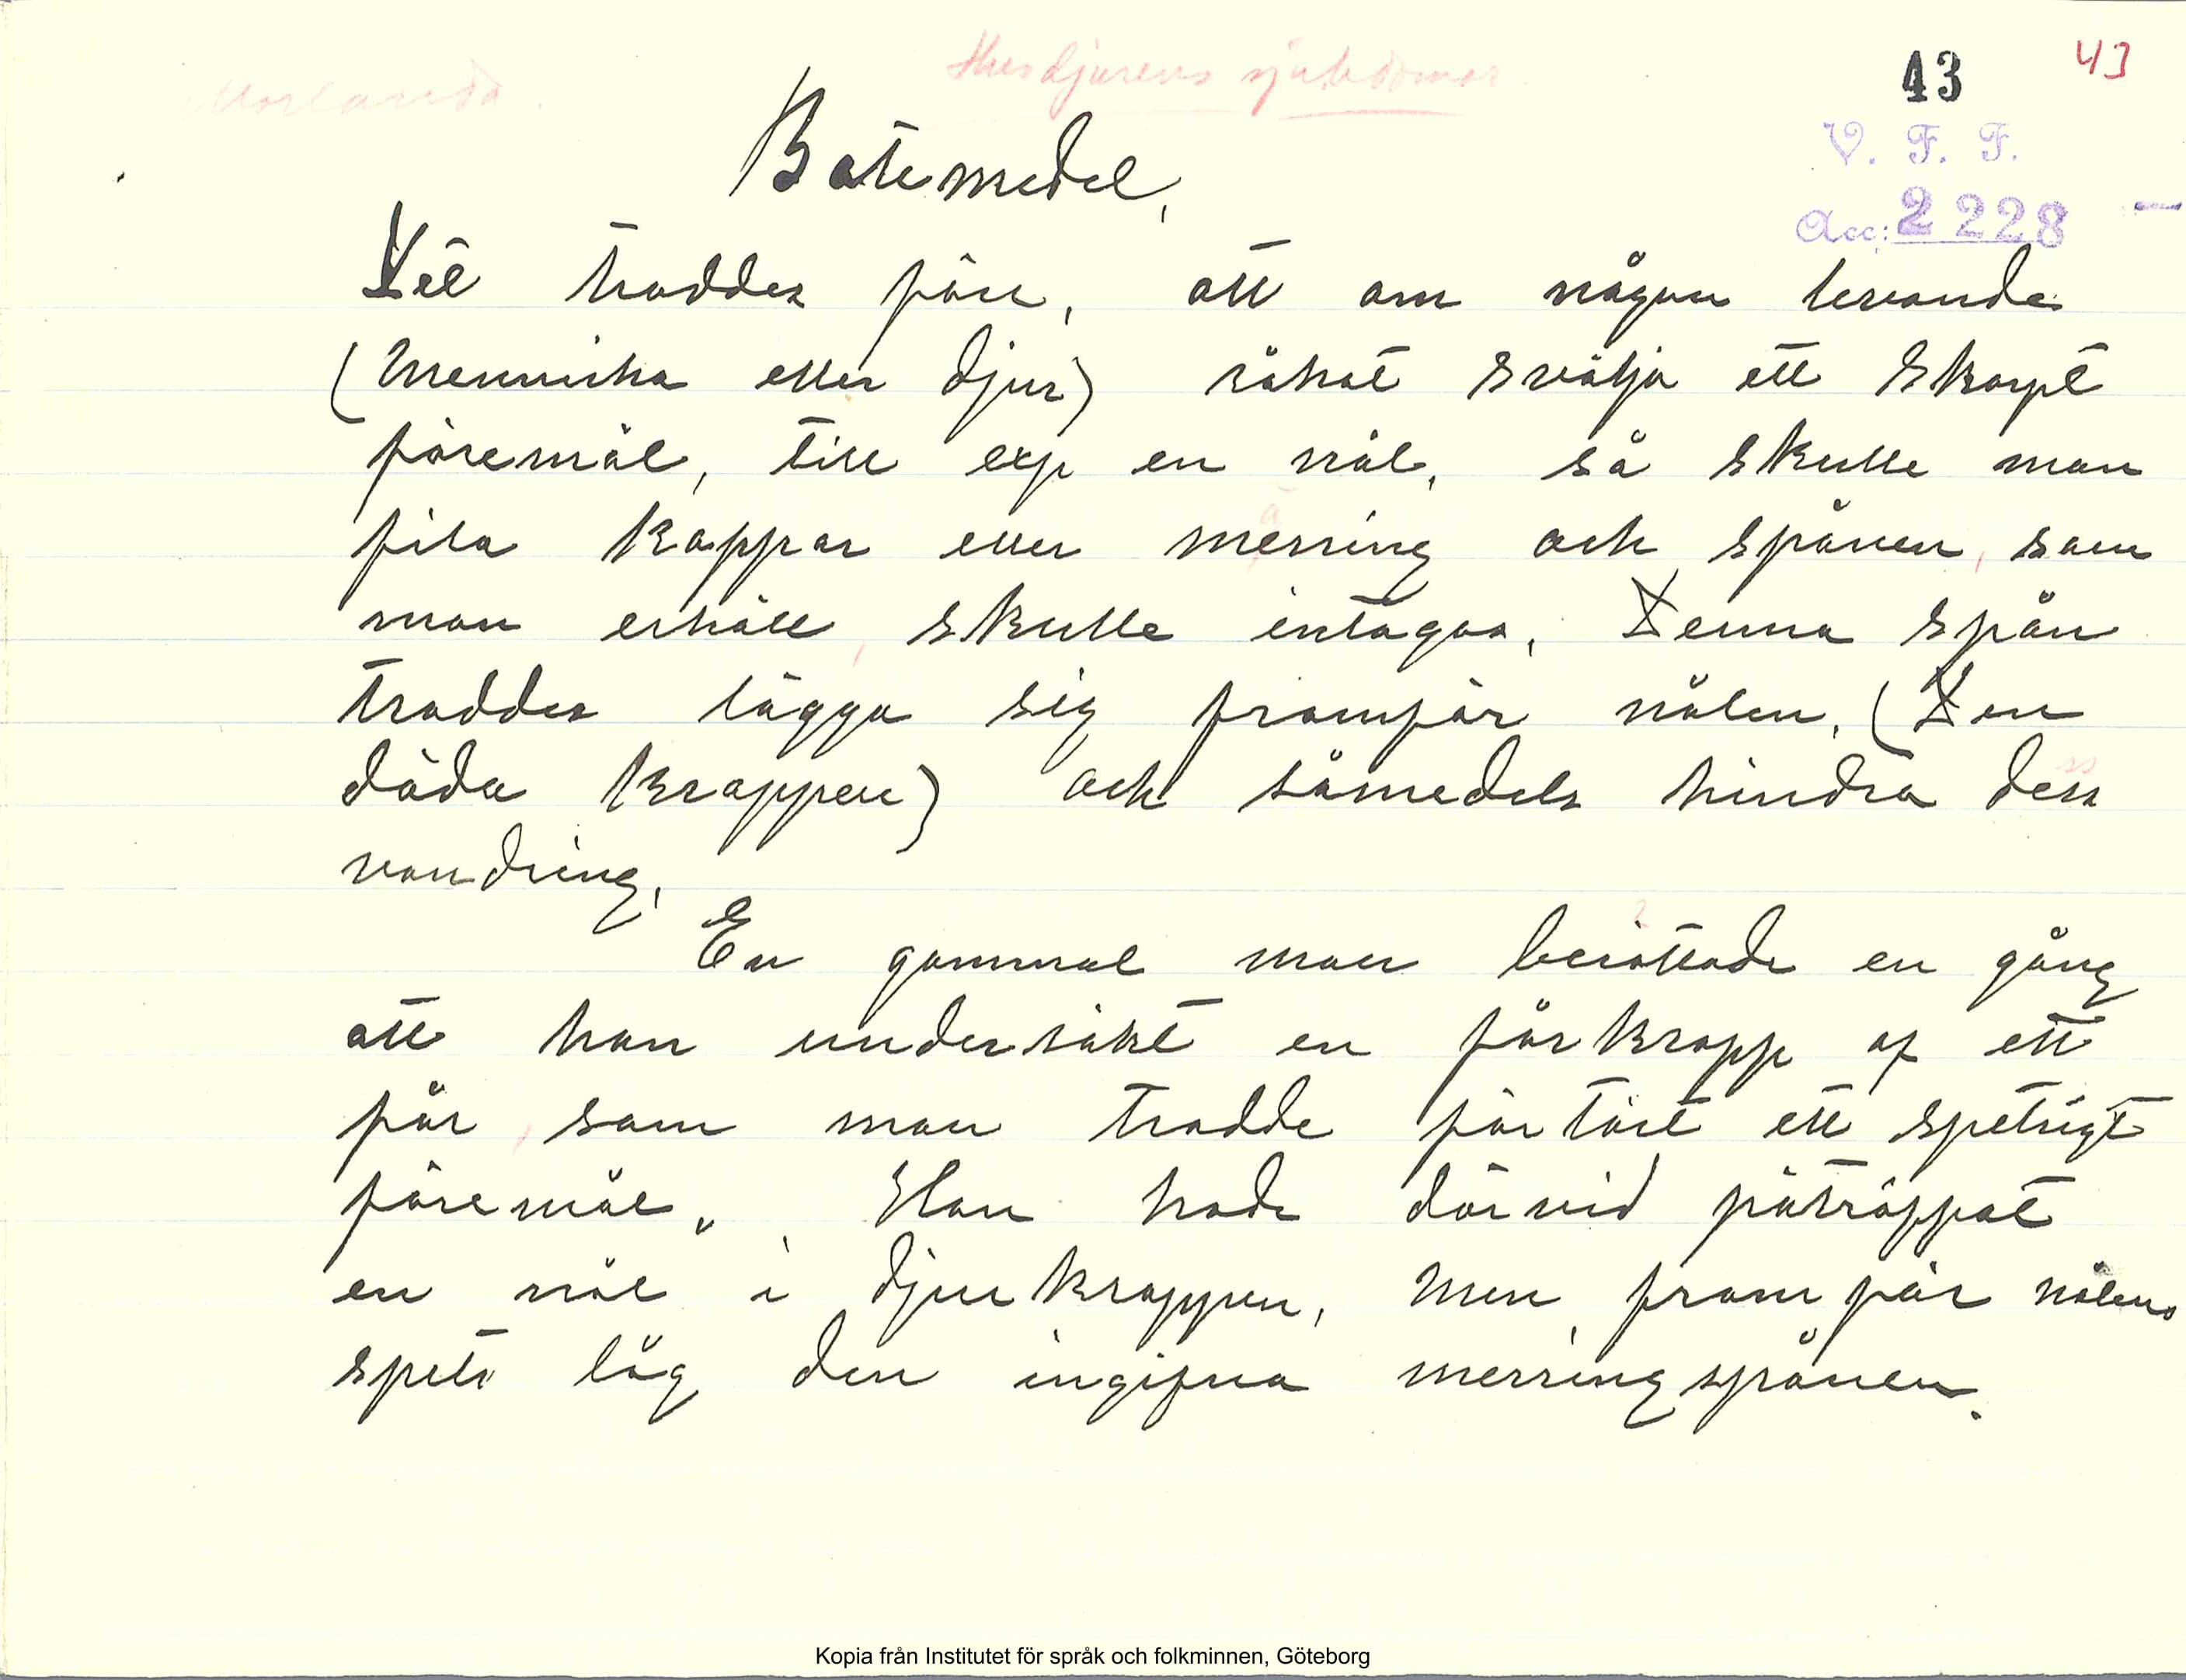 Morlanda.
Husdjurens sjukdomar
43
43
V. F. F.
Acc: 2228
Botemedel.
Det troddes förr, att om någon levande
(Menniska eller djur) råkat svälja ett skarpt
föremål, till exp en nål, så skulle man
fila koppar eller messing och spånen, som
man erhöll, skulle intagas. Denna spån
troddes lägga sig framför nålen. (Den
döda kroppen) och såmedels hindra dess
vandring.
En gammal man berättade en gång
att han undersökt en fårkropp af ett
får, som man trodde förtärt ett spetsigt
föremål. Han hade därvid påträppat
en nål i djurkroppen, Men framför nålens
spets låg den ingifna messingspånen.
Kopia från Institutet för språk och folkminnen, Göteborg